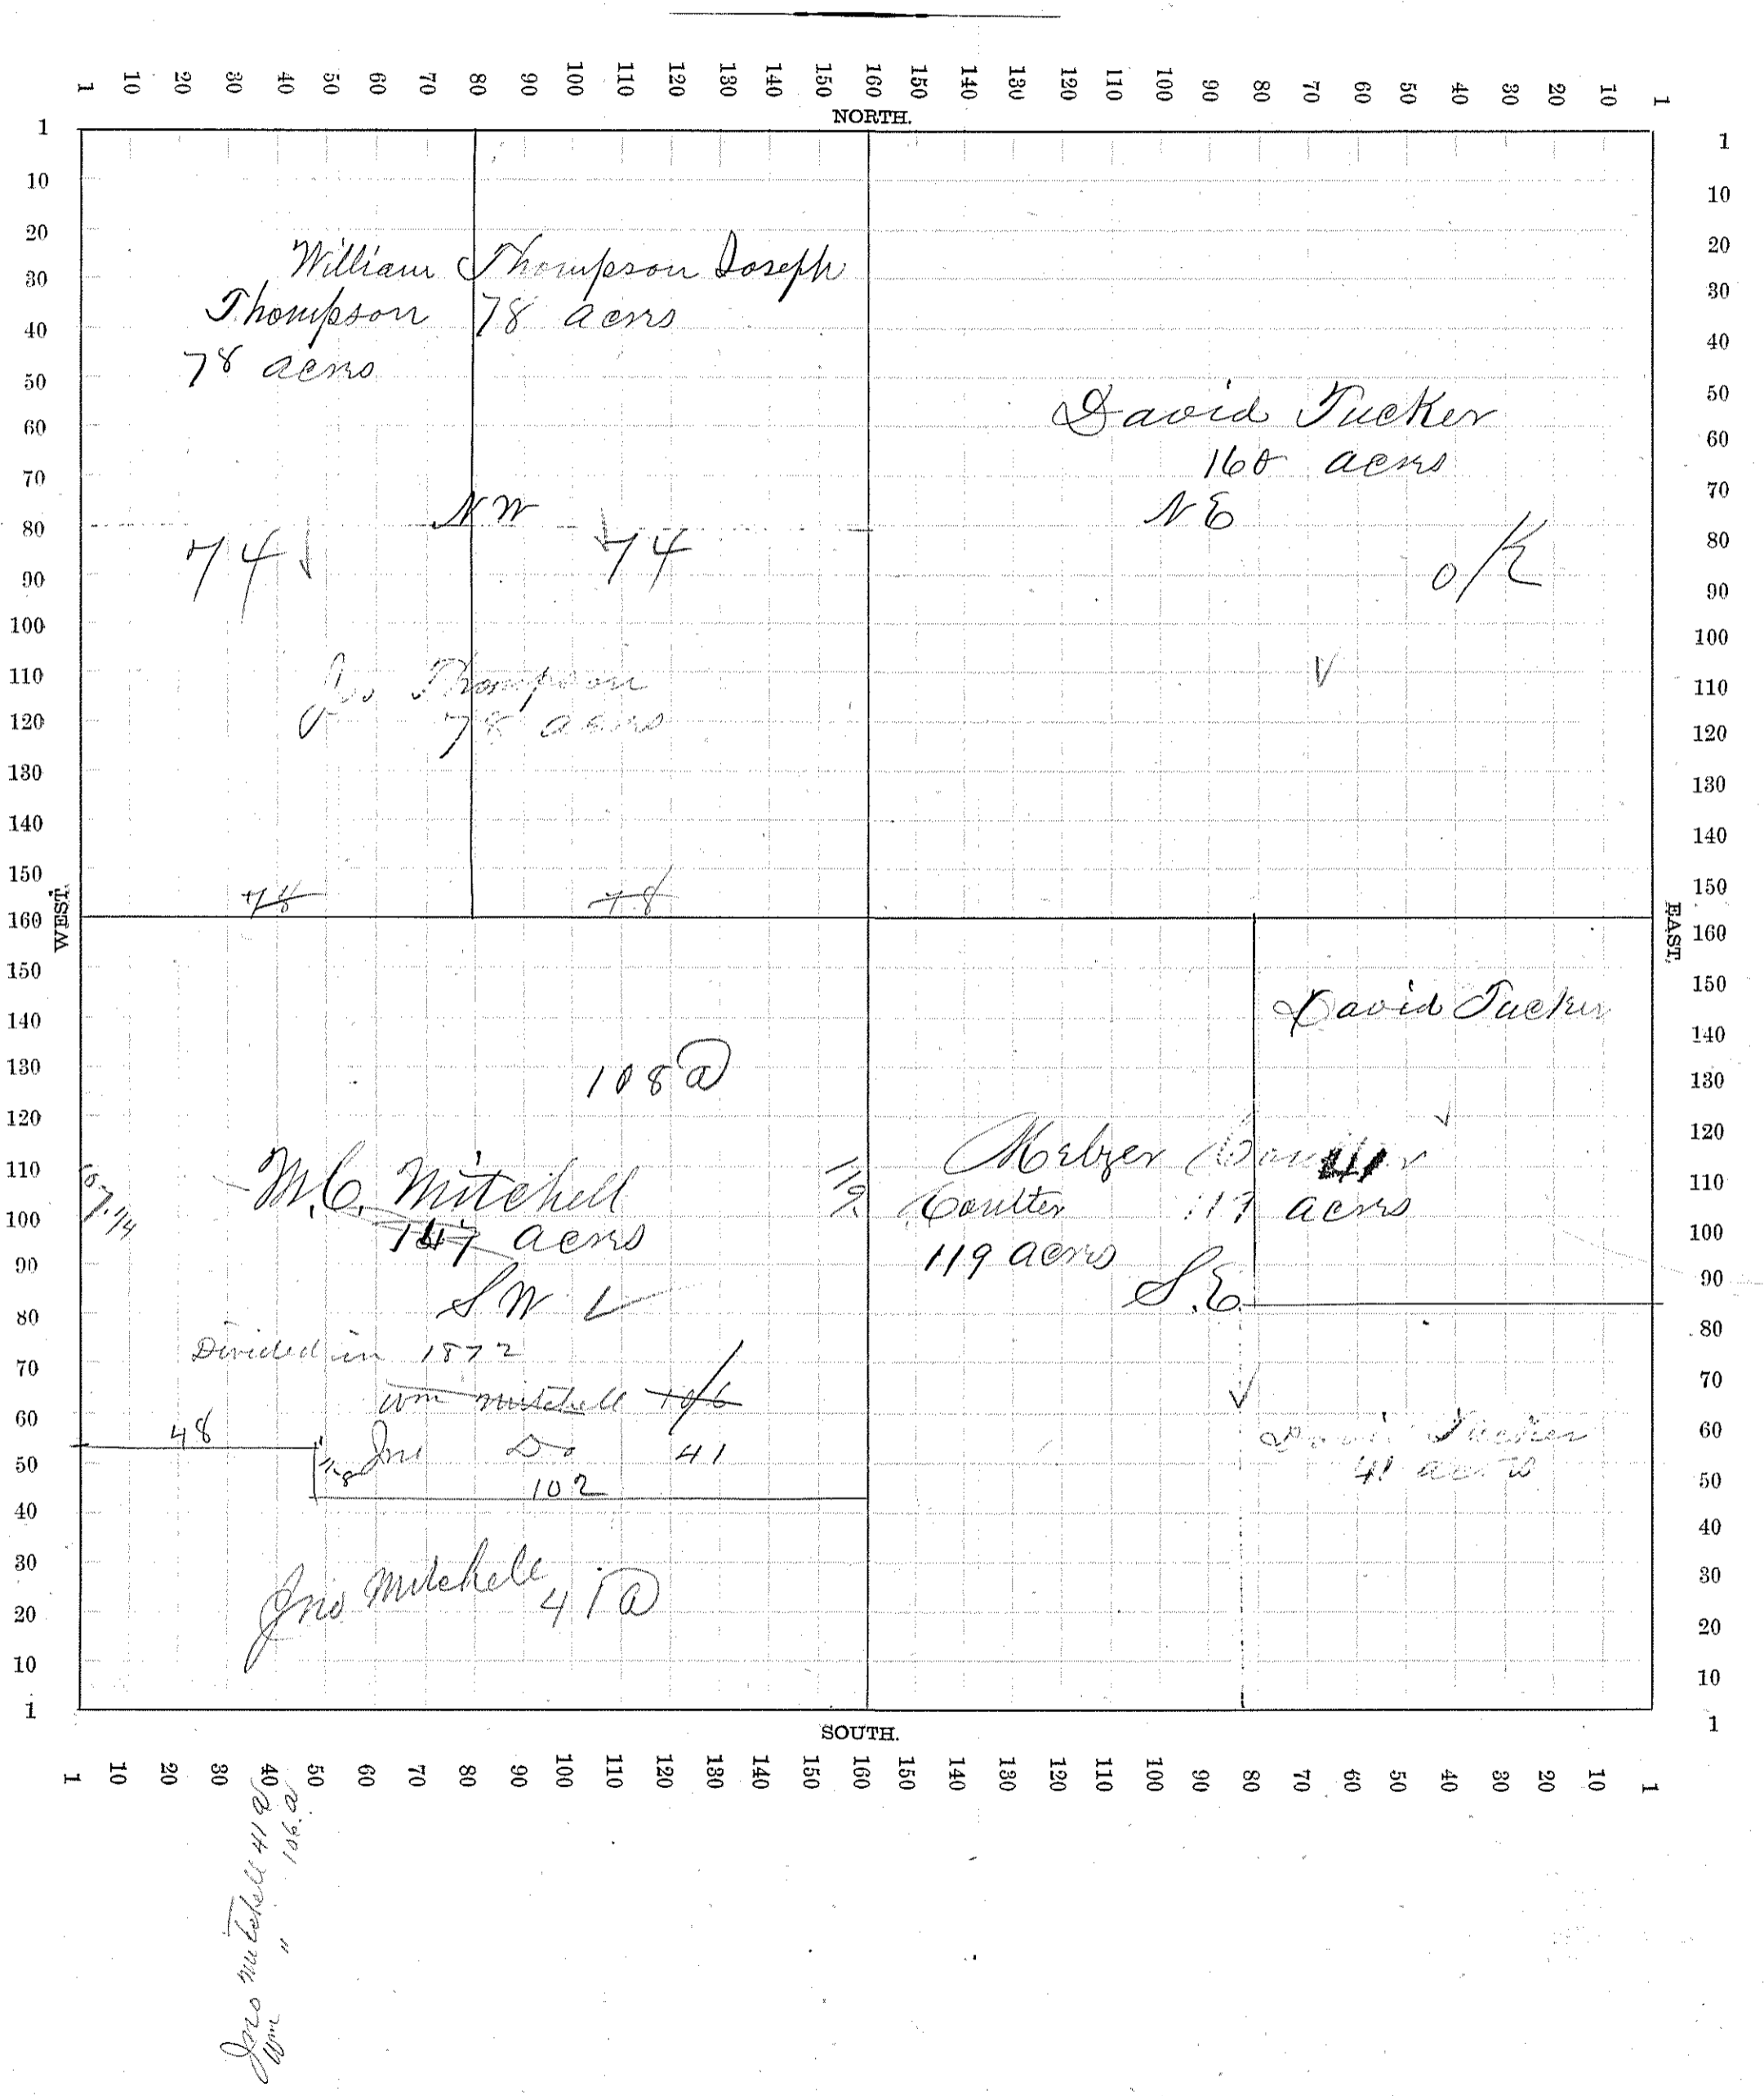 1 10 20 30 40 50 60 70 80 90 100 110 120 130 140 150 160 150 140 130 120 110 100 90 80 70 60 50 40 30 20 10 1
NORTH.
1 10 20 30 40 50 60 70 80 90 100 110 120 130 140 150 160 150 140 130 120 110 100 90 80 70 60 50 40 30 20 10 1
WEST.
William Thompson Joseph
Thompson 78 acres
78 acres
NW
74 74
Jos Thompson
78 acres
78 78
David Tucker
160 acres
NE
OK
108 a
M.C. Mitchell
147 acres
SW
107 1/4
Divided in 1872
Wm Mitchell 106
48
Jno Do 41
102
Jno Mitchell 41 a
David Tucker
119
Melzer Coulter 41
Coulter 119 acres
119 acres
S.E.
David Tucker
41 acres
1 10 20 30 40 50 60 70 80 90 100 110 120 130 140 150 160 150 140 130 120 110 100 90 80 70 60 50 40 30 20 10 1
EAST.
SOUTH.
1 10 20 30 40 50 60 70 80 90 100 110 120 130 140 150 160 150 140 130 120 110 100 90 80 70 60 50 40 30 20 10 1
Jno Mitchell 41 a
Wm " 106 a